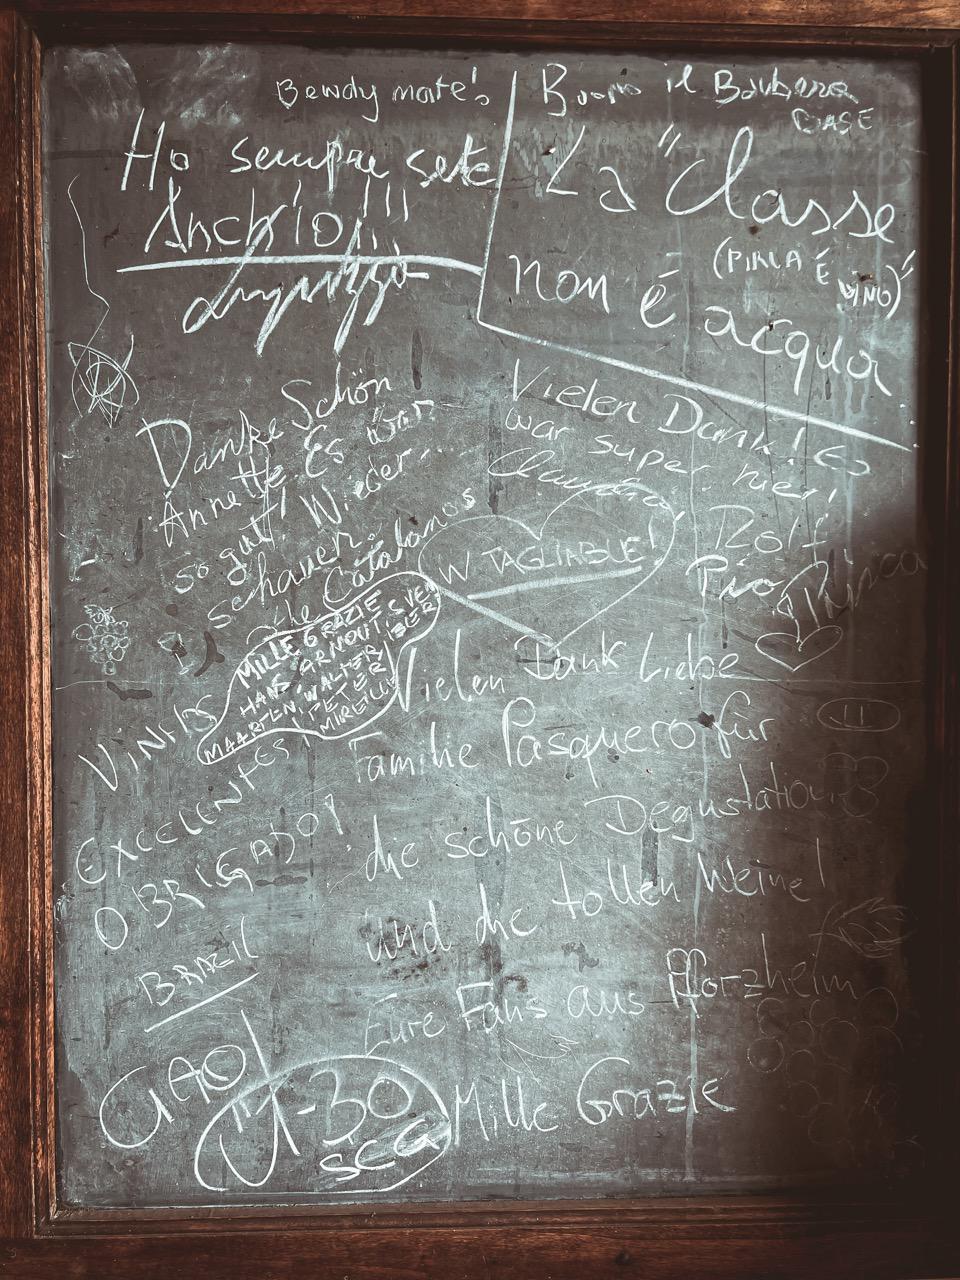 Bewdy mate!
Ho sempre sete
Anch'io!!!
Buono il Barbera
BASE
La "Classe
(PIRLA È
VINO)"
non é acqua
Danke Schön
Annette Es war
so gut! Wieder...
schauen.
the Catalanos
Vielen Dank! Es
war super hier!
Claudia,
Rolf,
Pio,
W TAGLIABLE!
MILLE GRAZIE
HANS, ARNOUT, SVEN
MAARTEN, WALTER
PETER
MIREILLE
VINHOS
EXCELENTES!
OBRIGADO!
BRAZIL
Vielen Dank Liebe
Familie Pasquero für
die schöne Degustation
und die tollen Weine!
Eure Fans aus Pforzheim
Mille Grazie
CIAO!
U-30
SCG